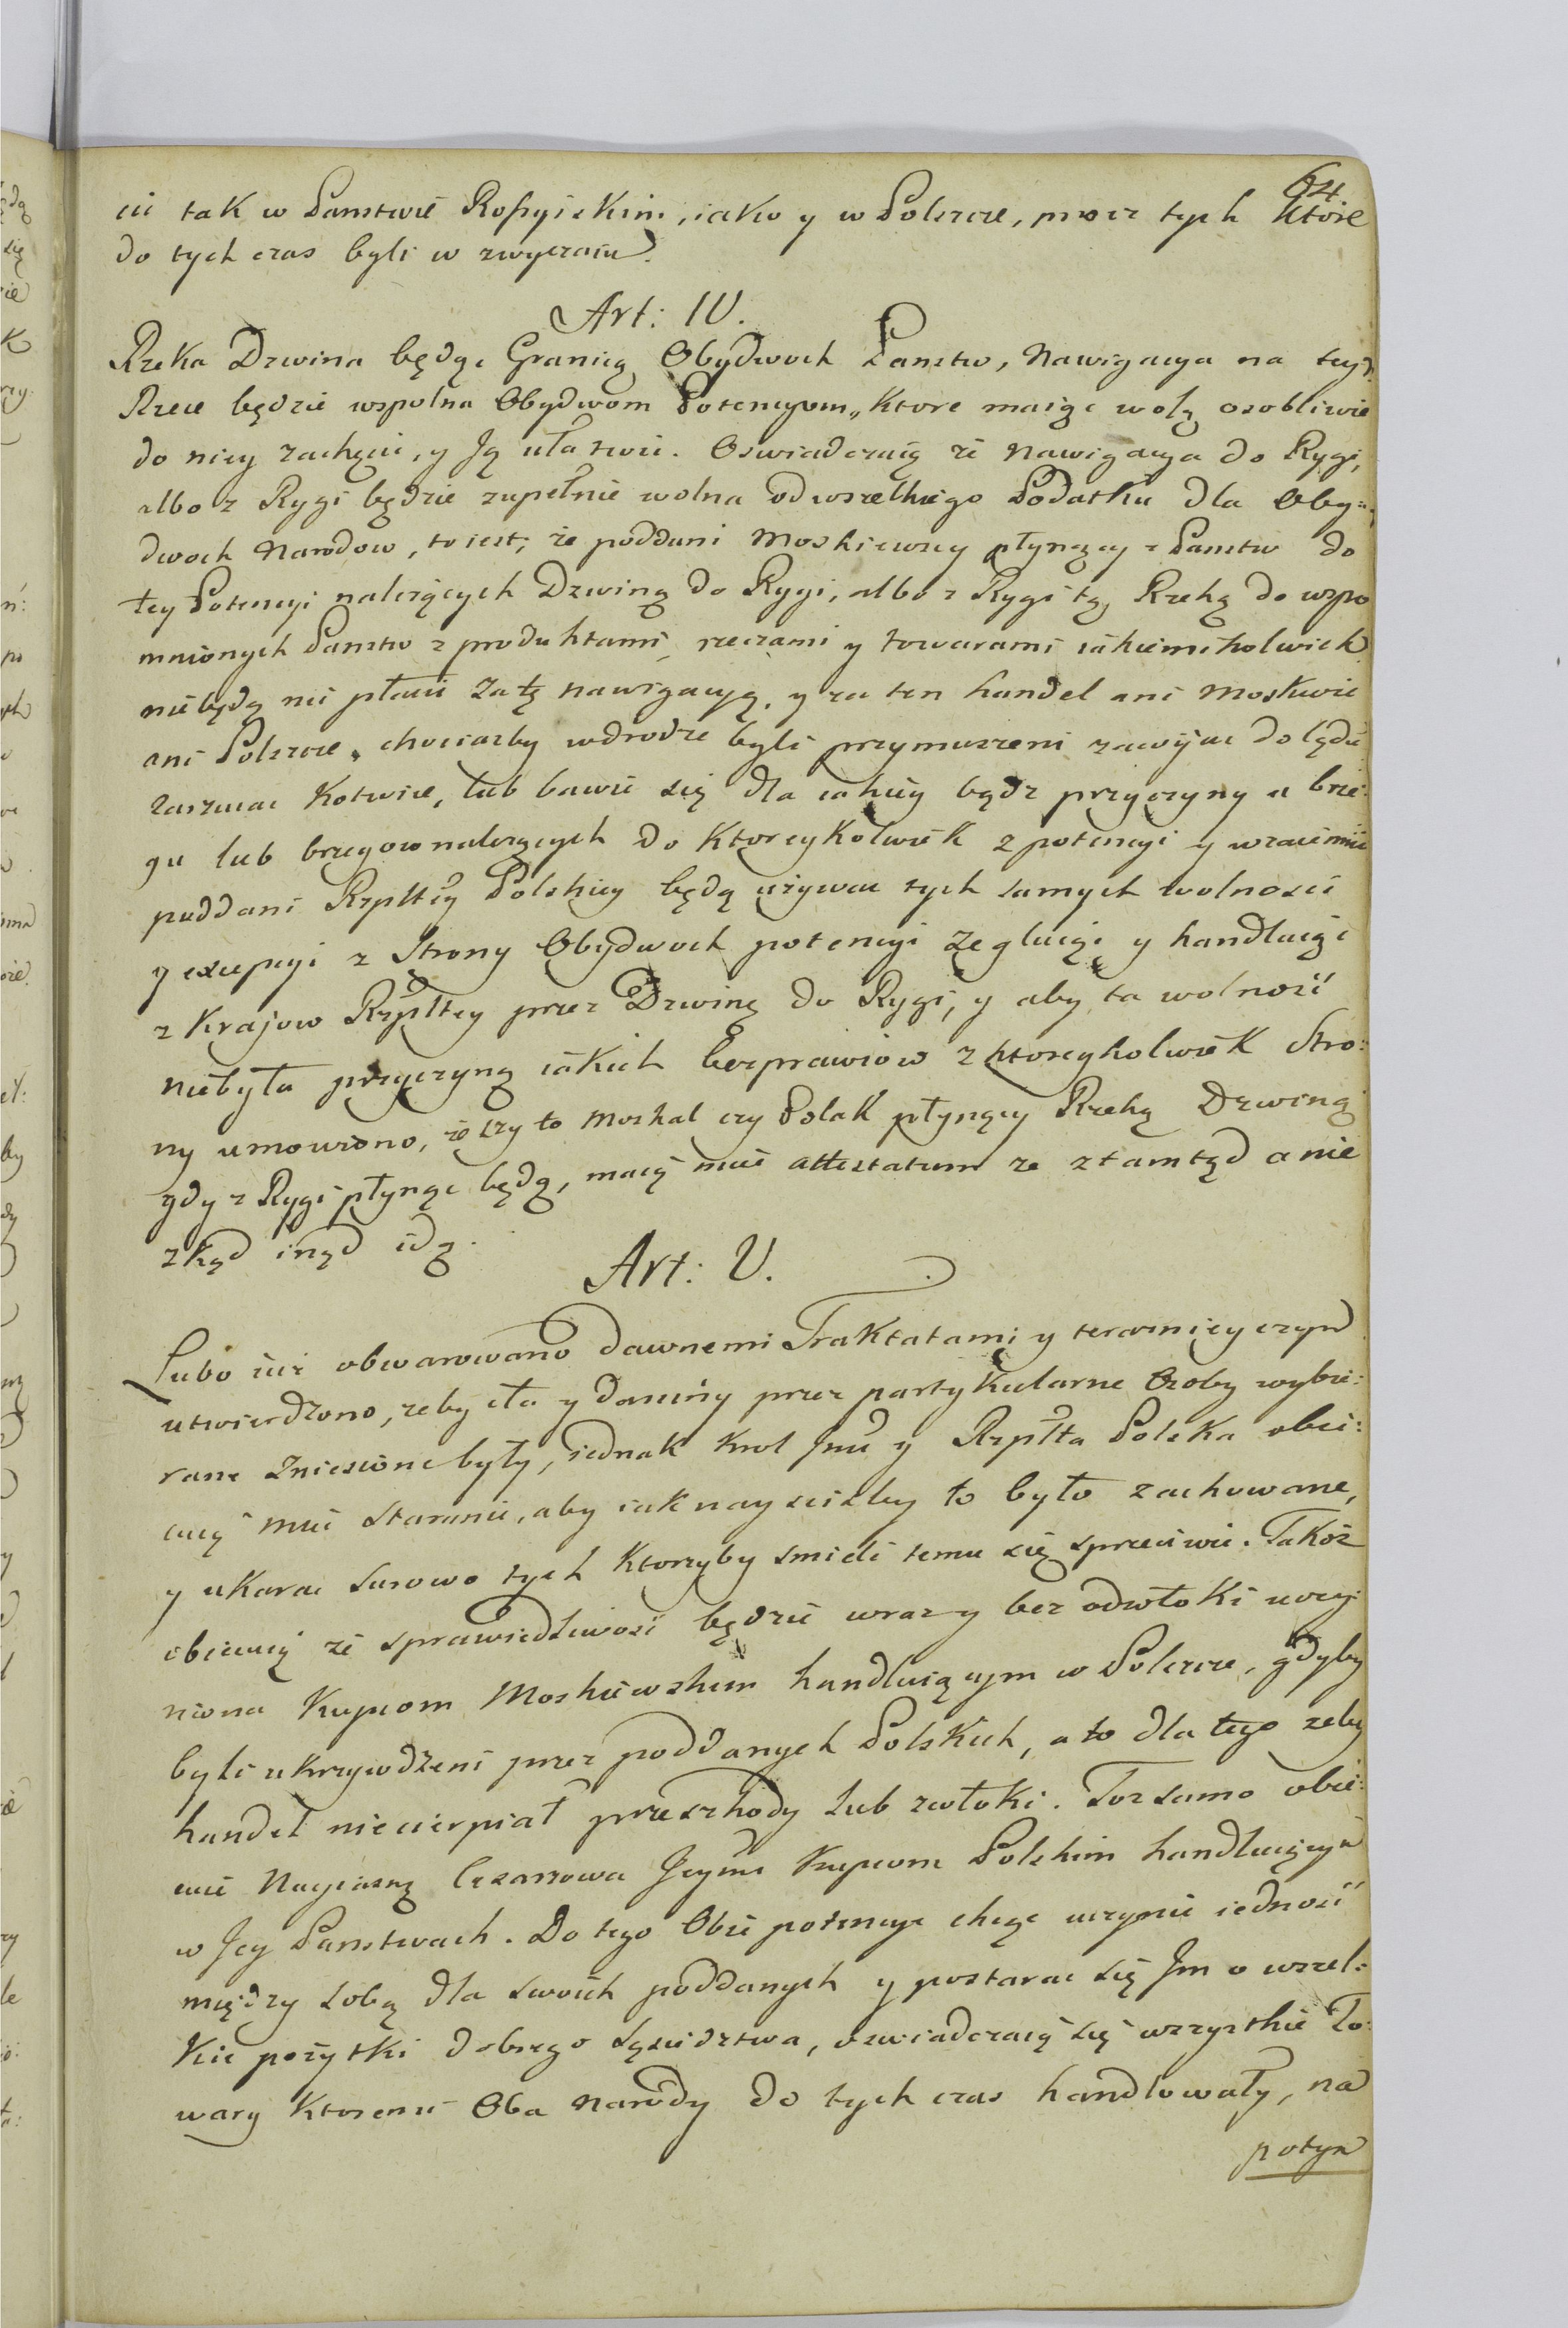 64
cii tak w Panstwie Rossyiskim, iako y w Polszcze, procz tych ktore
do tych czas byli w zwyczaiu.
Art: IV.
Rzeka Dzwina będąc Granicą Obydwoch Panstw, Nawigacya na tey
Rzece będzie wspolna Obydwom Potencyom, ktore maiąc wolę osobliwie
do niey zachęcic, y Ją ułatwic. Oswiadczaią ze Nawigacya do Rygi,
albo z Rygi będzie zupełnie wolna od wszelkiego Podatku dla Oby:
dwoch Narodow, to iest; że poddani Moskiewscy płynący z Panstw do
tey Potencyi należących Dzwiną do Rygi, albo z Rygi tą Rzeką do wspo
mnionych Panstw z produktami, rzeczami y towarami iakiemikolwiek
niebędą nic płacic za tę nawigacyą, y za ten handel ani Moskwie
ani Polszcze, chociazby w drodze byli przymuszeni zawijac do lądu
zarzucac Kotwice, lub bawic się dla iakiey bądz przyczyny u brze:
gu lub brzegow nalezących do Ktoreykolwiek z potencyi y wzaiemnie
puddani Rzpltey Polskiey będą uzywac tych samych wolnosci
y exepcyi z Strony Obydwoch potencyi żegluiąc y handluiąc
z Krajow Rzpltey przez Dzwinę do Rygi, y aby ta wolność
niebyła przyczyną iakich bezprawiow z ktoreykolwiek Stro:
ny umowiono, że czy to Moskal czy Polak płynący Rzeką Dzwiną
gdy z Rygi płynąc będą, maią miec attestatum ze ztamtąd a nie
zkąd inąd idą.
Art: V.
Lubo iuż obwarowano dawnemi Traktatami y terazniey szym
utwierdzono, zeby cła y daniny przez partykularne Osoby wybie:
rane zniesione były, iednak Krol Jmć y Rzplta Polska obie:
cuią miec staranie, aby iak nayscisley to było zachowane,
y ukarac surowo tych Ktorzyby smieli temu się sprzeciwic. Takoż
obiecuią że sprawiedliwość będzie wraz y bez odwłoki uczy
niona Kupcom Moskiewskim handluiącym w Polszcze, gdyby
byli ukrzywdzeni przez poddanych Polskich, a to dla tego zeby
handel niecierpiał przeszkody lub zwłoki. Toz samo obie:
cuie Nayiasną Cesarzowa Jeymć Kupcom Polskim handluiącym
w Jey Panstwach. Do tego Obie potencye chcąc uczynic iedność
między sobą dla swoich poddanych y postarac się Jm o wszel:
Kie pożytki dobrego sąsiedztwa, oswiadczaią się wszystkie To:
wary Ktoremi Oba Narody do tych czas handlowały, na
potym